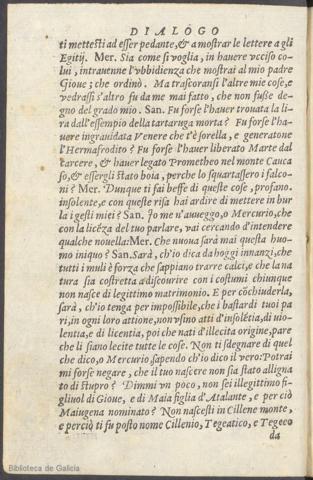 DIALOGO
ti mettesti ad esser pedante, & a mostrar le lettere a gli
Egitij. Mer. Sia come si voglia, in hauere vcciso co-
lui, intrauenne l'vbbidienza che mostrai al mio padre
Gioue; che ordinò. Ma trascoransi l'altre mie cose, e
vedrassi s'altro fu da me mai fatto, che non fusse de-
gno del grado mio. San. Fu forse l'hauer trouata la li-
ra dall'essempio della tartaruga morta? Fu forse l'ha-
uere ingrauidata Venere che t'è sorella, e generatone
l'Hermafrodito? Fu forse l'hauer liberato Marte dal
carcere, & hauer legato Prometheo nel monte Cauca
so, & essergli stato boia, perche lo squartassero i falco-
ni? Mer. Dunque ti fai beffe di queste cose, profano.
insolente, e con queste risa hai ardire di mettere in bur
la i gesti miei? San. Io me n'auueggo, o Mercurio, che
con la licẽza del tuo parlare, vai cercando d'intendere
qualche nouella: Mer. Che nuoua sarà mai questa huo-
mo iniquo? San. Sarà, ch'io dica da hoggi innanzi, che
tutti i muli è forza che sappiano trarre calci, e che la na
tura sia costretta a discourire con i costumi chiunque
non nasce di legittimo matrimonio. E per cõchiuderla,
sarà, ch'io tenga per impossibile, che i bastardi tuoi pa
ri, in ogni loro attione, non vsino atti d'insolẽtia, di uio-
lentia, e di licentia, poi che nati d'illecita origine, pare
che li siano lecite tutte le cose. Non ti sdegnare di quel
che dico, o Mercurio, sapendo ch'io dico il vero: Potrai
mi forse negare, che il tuo nascere non sia stato alligna
to di stupro? Dimmi vn poco, non sei illegittimo fi-
gliuol di Gioue, e di Maia figlia d'Atalante, e per ciò
Maiugena nominato? Non nascesti in Cillene monte,
e perciò ti fu posto nome Cillenio, Tegeatico, e Tegeeo
da
Biblioteca de Galicia